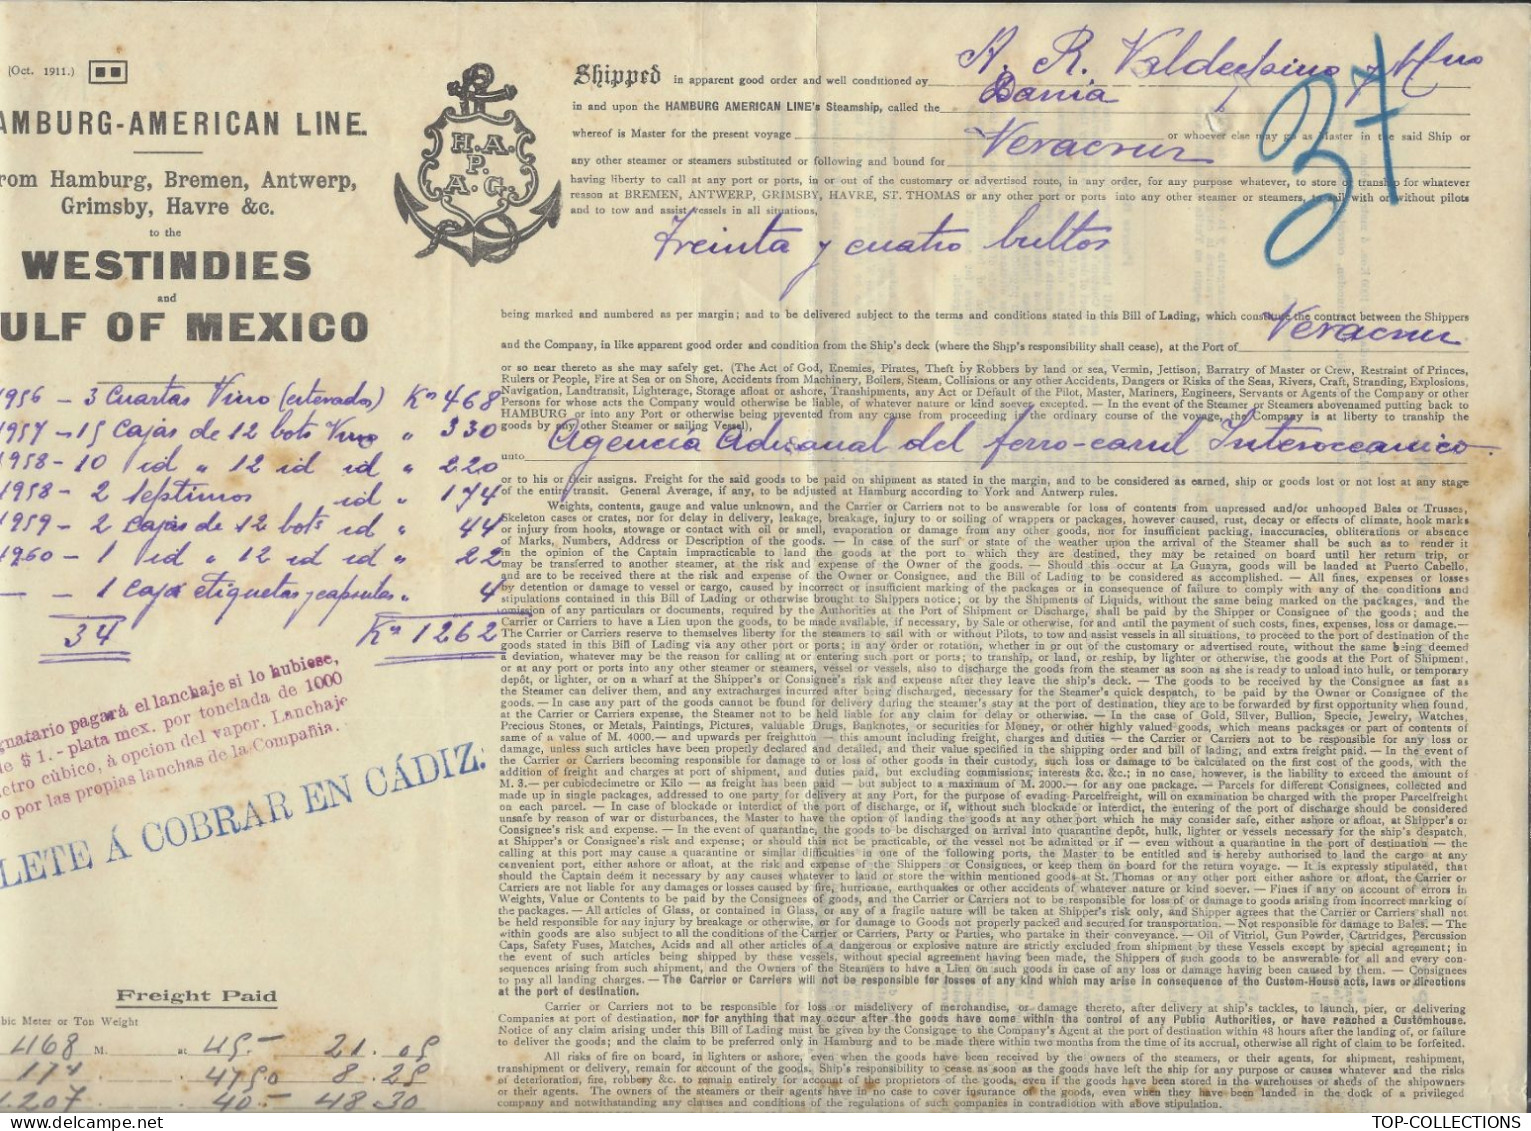 (Oct. 1911.)
AMBURG-AMERICAN LINE.
rom Hamburg, Bremen, Antwerp,
Grimsby, Havre &c.
to the
WESTINDIES
and
ULF OF MEXICO
H.A.
P.
A.G.
1956 - 3 Cuartas Vino (esterados) Kos 468
1957 - 15 Cajas de 12 bots Vino " 330
1958 - 10 id " 12 id id " 220
1958 - 2 Septimos id " 174
1959 - 2 cajas de 12 bots id " 44
1960 - 1 id " 12 id id " 22
— - 1 Caja etiquetas y capsulas " 4
34 Kos 1262
gnatario pagará el lanchaje si lo hubiese,
de $ 1.- plata mex. por tonelada de 1000
etro cúbico, á opcion del vapor. Lanchaje
o por las propias lanchas de la Compañia.
LETE Á COBRAR EN CÁDIZ.
Freight Paid
bic Meter or Ton Weight
468 M. at 45.- 21.05
174 4750 8.25
1.207 40.- 48.30
Shipped in apparent good order and well conditioned by A. R. Valdespino y Hno
in and upon the HAMBURG AMERICAN LINE's Steamship, called the Dania
37
whereof is Master for the present voyage or whoever else may go as Master in the said Ship or
any other steamer or steamers substituted or following and bound for Veracruz
having liberty to call at any port or ports, in or out of the customary or advertised route, in any order, for any purpose whatever, to store or tranship for whatever
reason at BREMEN, ANTWERP, GRIMSBY, HAVRE, ST. THOMAS or any other port or ports into any other steamer or steamers, to sail with or without pilots
and to tow and assist vessels in all situations,
Treinta y cuatro bultos
being marked and numbered as per margin; and to be delivered subject to the terms and conditions stated in this Bill of Lading, which constitute the contract between the Shippers
and the Company, in like apparent good order and condition from the Ship's deck (where the Ship's responsibility shall cease), at the Port of Veracruz
or so near thereto as she may safely get. (The Act of God, Enemies, Pirates, Theft by Robbers by land or sea, Vermin, Jettison, Barratry of Master or Crew, Restraint of Princes,
Rulers or People, Fire at Sea or on Shore, Accidents from Machinery, Boilers, Steam, Collisions or any other Accidents, Dangers or Risks of the Seas, Rivers, Craft, Stranding, Explosions,
Navigation, Landtransit, Lighterage, Storage afloat or ashore, Transhipments, any Act or Default of the Pilot, Master, Mariners, Engineers, Servants or Agents of the Company or other
Persons for whose acts the Company would otherwise be liable, of whatever nature or kind soever excepted. — In the event of the Steamer or Steamers abovenamed putting back to
HAMBURG or into any Port or otherwise being prevented from any cause from proceeding in the ordinary course of the voyage, the Company is at liberty to tranship the
goods by any other Steamer or sailing Vessel),
unto Agencia Aduanal del ferro-carril Interoceanico
or to his or their assigns. Freight for the said goods to be paid on shipment as stated in the margin, and to be considered as earned, ship or goods lost or not lost at any stage
of the entire transit. General Average, if any, to be adjusted at Hamburg according to York and Antwerp rules.
Weights, contents, gauge and value unknown, and the Carrier or Carriers not to be answerable for loss of contents from unpressed and/or unhooped Bales or Trusses,
Skeleton cases or crates, nor for delay in delivery, leakage, breakage, injury to or soiling of wrappers or packages, however caused, rust, decay or effects of climate, hook marks
or injury from hooks, stowage or contact with oil or smell, evaporation or damage from any other goods, nor for insufficient packing, inaccuracies, obliterations or absence
of Marks, Numbers, Address or Description of the goods. — In case of the surf or state of the weather upon the arrival of the Steamer shall be such as to render it
in the opinion of the Captain impracticable to land the goods at the port to which they are destined, they may be retained on board until her return trip, or
may be transferred to another steamer, at the risk and expense of the Owner of the goods. — Should this occur at La Guayra, goods will be landed at Puerto Cabello,
and are to be received there at the risk and expense of the Owner or Consignee, and the Bill of Lading to be considered as accomplished. — All fines, expenses or losses
by detention or damage to vessel or cargo, caused by incorrect or insufficient marking of the packages or in consequence of failure to comply with any of the conditions and
stipulations contained in this Bill of Lading or otherwise brought to Shippers notice; or by the Shipments of Liquids, without the same being marked on the packages, and the
omission of any particulars or documents, required by the Authorities at the Port of Shipment or Discharge, shall be paid by the Shipper or Consignee of the goods; and the
Carrier or Carriers to have a Lien upon the goods, to be made available, if necessary, by Sale or otherwise, for and until the payment of such costs, fines, expenses, loss or damage.—
The Carrier or Carriers reserve to themselves liberty for the steamers to sail with or without Pilots, to tow and assist vessels in all situations, to proceed to the port of destination of the
goods stated in this Bill of Lading via any other port or ports; in any order or rotation, whether in or out of the customary or advertised route, without the same being deemed
a deviation, whatever may be the reason for calling at or entering such port or ports; to tranship, or land, or reship, by lighter or otherwise, the goods at the Port of Shipment,
or at any port or ports into any other steamer or steamers, vessel or vessels, also to discharge the goods from the steamer as soon as she is ready to unload into hulk, or temporary
depôt, or lighter, or on a wharf at the Shipper's or Consignee's risk and expense after they leave the ship's deck. — The goods to be received by the Consignee as fast as
the Steamer can deliver them, and any extracharges incurred after being discharged, necessary for the Steamer's quick despatch, to be paid by the Owner or Consignee of the
goods. — In case any part of the goods cannot be found for delivery during the steamer's stay at the port of destination, they are to be forwarded by first opportunity when found,
at the Carrier or Carriers expense, the Steamer not to be held liable for any claim for delay or otherwise. — In the case of Gold, Silver, Bullion, Specie, Jewelry, Watches,
Precious Stones, or Metals, Paintings, Pictures, valuable Drugs, Banknotes, or securities for Money, or other highly valued goods, which means packages or part of contents of
same of a value of M. 4000.— and upwards per freightton — this amount including freight, charges and duties — the Carrier or Carriers not to be responsible for any loss or
damage, unless such articles have been properly declared and detailed, and their value specified in the shipping order and bill of lading, and extra freight paid. — In the event of
the Carrier or Carriers becoming responsible for damage to or loss of other goods in their custody, such loss or damage to be calculated on the first cost of the goods, with the
addition of freight and charges at port of shipment, and duties paid, but excluding commissions, interests &c. &c.; in no case, however, is the liability to exceed the amount of
M. 3.— per cubicdecimetre or Kilo — as freight has been paid — but subject to a maximum of M. 2000.— for any one package. — Parcels for different Consignees, collected and
made up in single packages, addressed to one party for delivery at any Port, for the purpose of evading Parcelfreight, will on examination be charged with the proper Parcelfreight
on each parcel. — In case of blockade or interdict of the port of discharge, or if, without such blockade or interdict, the entering of the port of discharge should be considered
unsafe by reason of war or disturbances, the Master to have the option of landing the goods at any other port which he may consider safe, either ashore or afloat, at Shipper's or
Consignee's risk and expense. — In the event of quarantine, the goods to be discharged on arrival into quarantine depôt, hulk, lighter or vessels necessary for the ship's despatch,
at Shipper's or Consignee's risk and expense; or should this not be practicable, or the vessel not be admitted or if — even without a quarantine in the port of destination — the
calling at this port may cause a quarantine or similar difficulties in one of the following ports, the Master to be entitled and is hereby authorised to land the cargo at any
convenient port, either ashore or afloat, at the risk and expense of the Shippers or Consignees, or keep them on board for the return voyage. — It is expressly stipulated, that
should the Captain deem it necessary by any causes whatever to land or store the within mentioned goods at St. Thomas or any other port either ashore or afloat, the Carrier or
Carriers are not liable for any damages or losses caused by fire, hurricane, earthquakes or other accidents of whatever nature or kind soever. — Fines if any on account of errors in
Weights, Value or Contents to be paid by the Consignees of goods, and the Carrier or Carriers not to be responsible for loss of or damage to goods arising from incorrect marking of
the packages. — All articles of Glass, or contained in Glass, or any of a fragile nature will be taken at Shipper's risk only, and Shipper agrees that the Carrier or Carriers shall not
be held responsible for any injury by breakage or otherwise, or for damage to Goods not properly packed and secured for transportation. — Not responsible for damage to Bales. — The
within goods are also subject to all the conditions of the Carrier or Carriers, Party or Parties, who partake in their conveyance. — Oil of Vitriol, Gun Powder, Cartridges, Percussion
Caps, Safety Fuses, Matches, Acids and all other articles of a dangerous or explosive nature are strictly excluded from shipment by these Vessels except by special agreement; in
the event of such articles being shipped by these vessels, without special agreement having been made, the Shippers of such goods to be answerable for all and every con-
sequences arising from such shipment, and the Owners of the Steamers to have a Lien on such goods in case of any loss or damage having been caused by them. — Consignees
to pay all landing charges. — The Carrier or Carriers will not be responsible for losses of any kind which may arise in consequence of the Custom-House acts, laws or directions
at the port of destination.
Carrier or Carriers not to be responsible for loss or misdelivery of merchandise, or damage thereto, after delivery at ship's tackles, to launch, pier, or delivering
Companies at port of destination, nor for anything that may occur after the goods have come within the control of any Public Authorities, or have reached a Customhouse.
Notice of any claim arising under this Bill of Lading must be given by the Consignee to the Company's Agent at the port of destination within 48 hours after the landing of, or failure
to deliver the goods; and the claim to be preferred only in Hamburg and to be made there within two months from the time of its accrual, otherwise all right of claim to be forfeited.
All risks of fire on board, in lighters or ashore, even when the goods have been received by the owners of the steamers, or their agents, for shipment, reshipment,
transhipment or delivery, remain for account of the goods. Ship's responsibility to cease as soon as the goods have left the ship for any purpose causes whatever and the risks
of deterioration, fire, robbery &c. to remain entirely for account of the proprietors of the goods, even if the goods have been stored in the warehouses or sheds of the shipowners
or their agents. The owners of the steamers or their agents have in no case to cover insurance of the goods, even when they have been landed in the dock of a privileged
company and notwithstanding any clauses and conditions of the regulations of such companies in contradiction with above stipulation.
TOP-COLLECTIONS